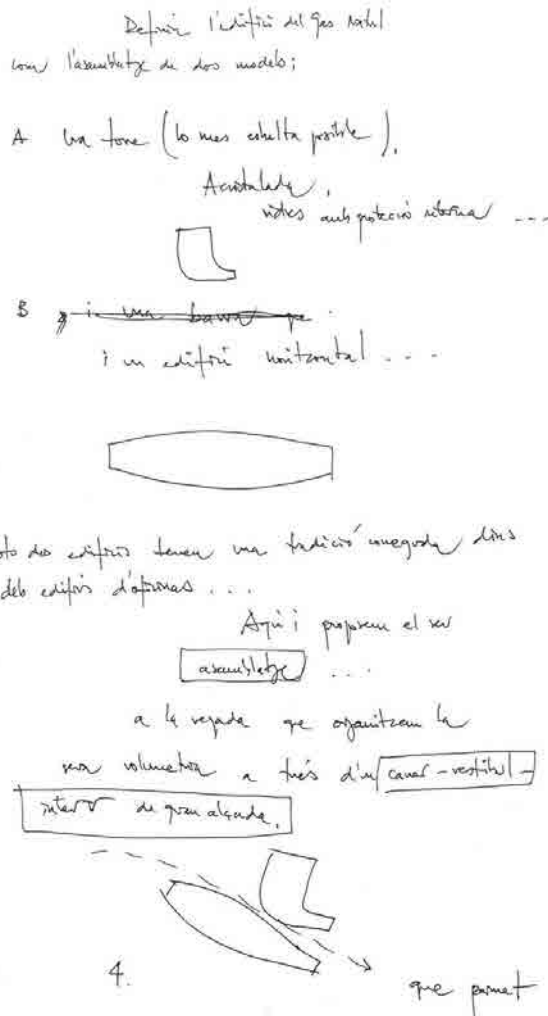 Definir l'edifici del Gas Natul
com l'assemblatge de dos models;
A una torre (lo mes esbelta posible).
Acristalada,
vidres amb protecció interna ...
B i una barra que
i un edifici horitzontal ...
dos edificis tenen una tradició coneguda dins
dels edificis d'oficines ...
Aquí i proposem el seu
assemblatge ...
a la vegada que organitzem la
seva volumetria a través d'un carrer-vestíbul-
interior de gran alçada.
4.
que permet